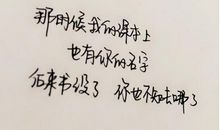 那时候我的课本上
也有你的名字
后来书没了 你也不知去哪了